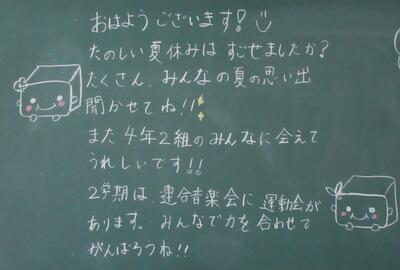 おはようございます!
たのしい夏休みは すごせましたか?
たくさん、みんなの夏の思い出
聞かせてね!!
また4年2組のみんなに会えて
うれしいです!!
2学期は、連合音楽会に運動会が
あります。みんなで力を合わせて
がんばろうね!!